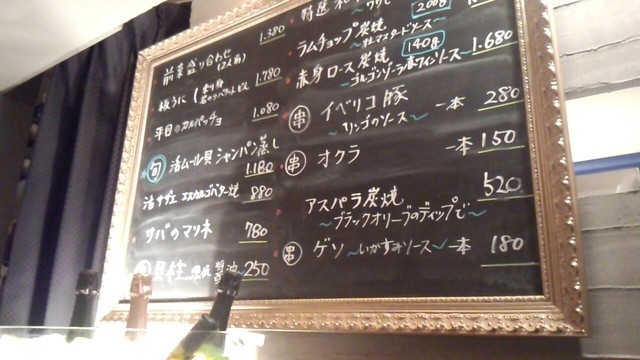 前菜盛り合わせ
(2人前)
1.380
板うに
1.780
平目のカルパッチョ
1.080
旬 活ムール貝シャンパン蒸し
1.180
活サザエ エスカルゴバター焼 880
サバのマリネ 780
貝柱 醤油 250
特選
200g
ラムチョップ炭焼
～粒マスタードソース～
140g
赤身ロース炭焼 1.680
～ゴルゴンゾーラ赤ワインソース～
串 イベリコ豚 一本 280
～リンゴのソース～
串 オクラ 一本 150
アスパラ炭焼 520
～ブラックオリーブのディップで～
串 ゲソ ～いかすみソース～ 一本 180